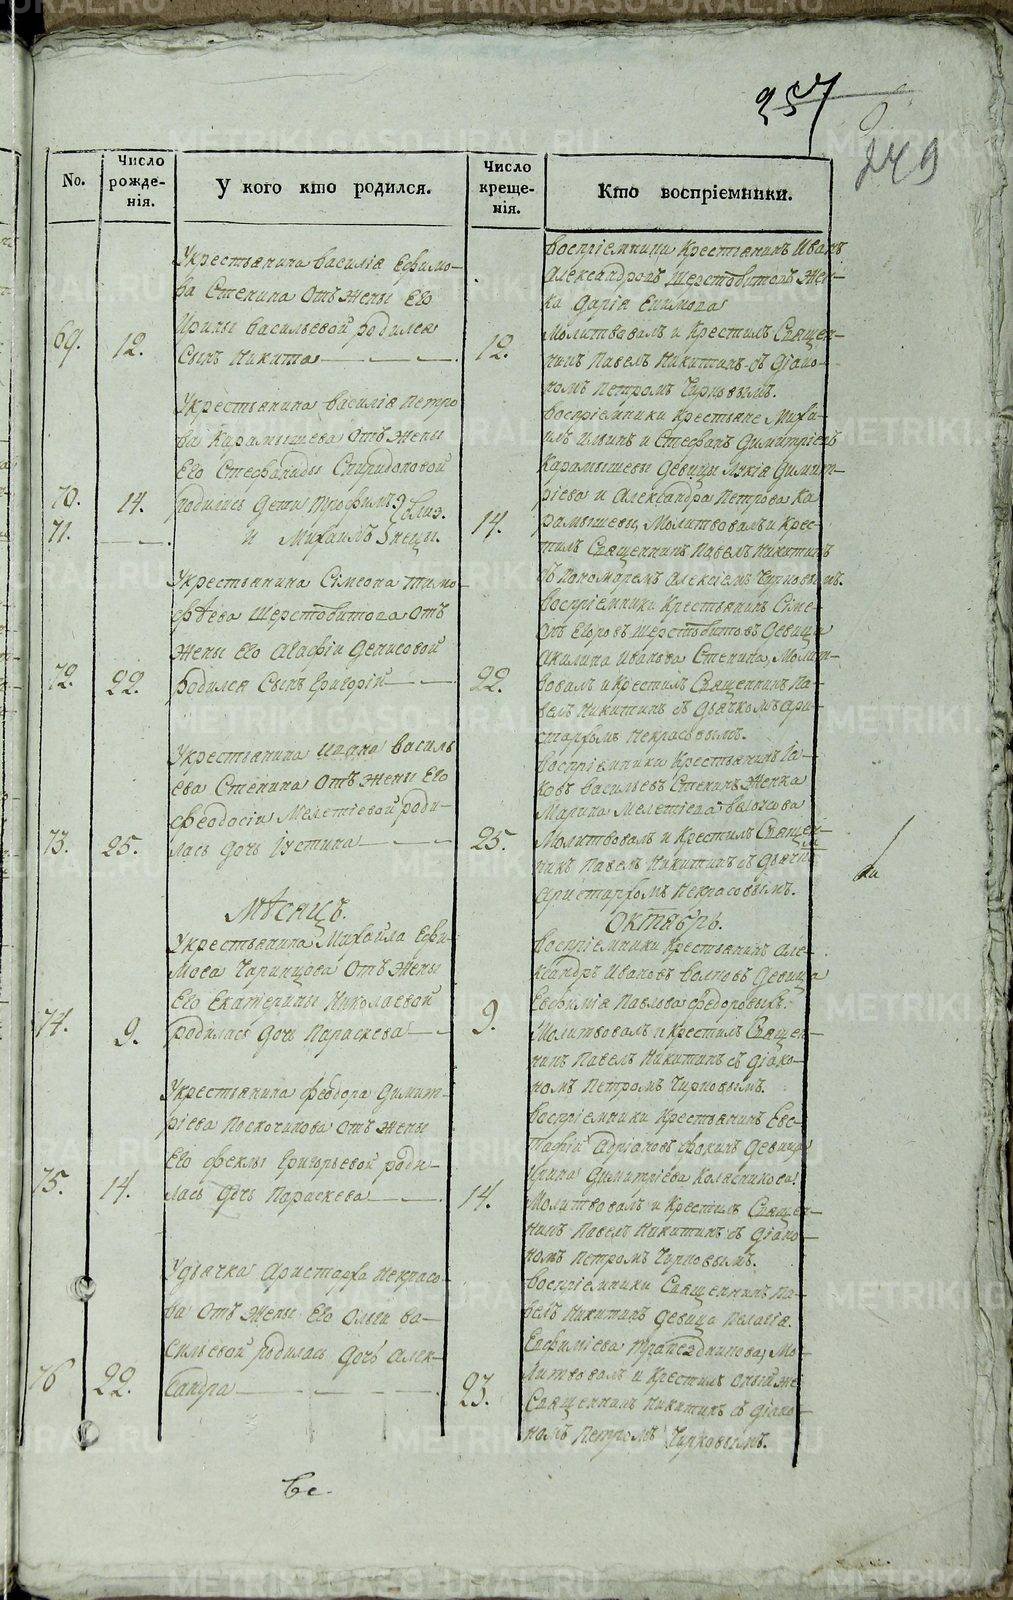 257
249
No.
Число рожденія.
У кого кто родился.
Число крещенія.
Кто воспріемники.
Укрестьянина Василія Ефимо-
ва Степина отъ жены Его
Ирины Васильевой родился
69. 12. сынъ Никита 12.
воспріемники Крестьянинъ Иванъ
Александровъ Шерстобитовъ Жен-
ка Дарія Екимова
Молитвовалъ и Крестилъ Священ-
никъ Павелъ Никитинъ съ Діако-
номъ Петромъ
Укрестьянина Василія Петро
ва Карамышева отъ жены
Его Стефаниды Спиридоновой
70. 14. родились дети Трофимъ близ.
71. и Михаилъ нецы. 14.
Воспріемники Крестьяне Миха-
илъ и Стефанъ Димитріевъ
Карамышевы Девицы Лукія Димит-
ріева и Александра Петрова Ка
рамышевы, Молитвовалъ и Крес-
тилъ Священникъ Павелъ Никитинъ
съ Пономаремъ Алексіемъ
Укрестьянина Сімеона Тимо-
фѣева Шерстобитова отъ
жены Его Агафіи Денисовой
72. 22. родился сынъ Григорій 22.
воспріемники Крестьянинъ Сіме-
онъ Шерстобитовъ Девица
Акилина Иванова Степина, Молит-
вовалъ и Крестилъ Священникъ Па-
велъ Никитинъ съ Дьячкомъ Ари-
стархомъ Некрасовымъ.
Укрестьянина Ивана Василь
ева Степина отъ жены Его
Феодосіи Мелетіевой роди-
73. 25. лась дочь Іустина 25.
воспріемники Крестьянинъ Іа-
ковъ Васильевъ Степинъ Женка
Марина Мелетіева
Молитвовалъ и Крестилъ Священ-
никъ Павелъ Никитинъ съ Дьячк
Аристархомъ Некрасовымъ.
Мѣсяцъ. Октябрь.
Укрестьянина Михаила Ефи-
мова отъ жены
Его Екатерины Николаевой
74. 9. родилась дочь Параскева 9.
Воспріемники Крестьянинъ Але-
ксандръ Ивановъ Девица
Евфимія Павлова Федоровыхъ.
Молитвовалъ и Крестилъ Священ-
никъ Павелъ Никитинъ съ Діако-
номъ Петромъ
Укрестьянина Феодора Димит-
ріева Поскочинова отъ жены
Его Феклы Григорьевой роди-
75. 14. лась дочь Параскева 14.
Воспріемники Крестьянинъ Евс-
тафій Девица
Ирина Димитріева Колесникова
Молитвовалъ и Крестилъ Священ-
никъ Павелъ Никитинъ съ Діако-
номъ Петромъ
Удьячка Аристарха Некрасо-
ва отъ жены Его Ольги Ва-
сильевой родилась дочь Алек-
76 22. сандра 23.
Воспріемники Священникъ Па-
велъ Никитинъ Девица Пелагія
Евфиміева Трапездникова, Мо-
литвовалъ и Крестилъ оный же
Священникъ Никитинъ съ Діако-
номъ Петромъ
METRIKI.GASO-URAL.RU